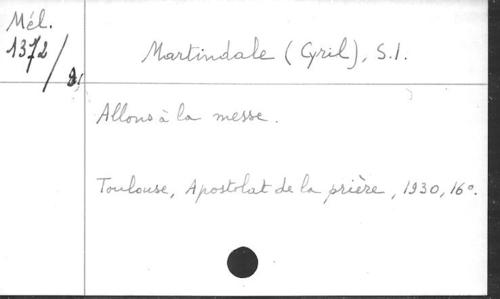 Mél.
1372/
Martindale (Cyril), S.I.
Allons à la messe.
Toulouse, Apostolat de la prière, 1930, 16°.